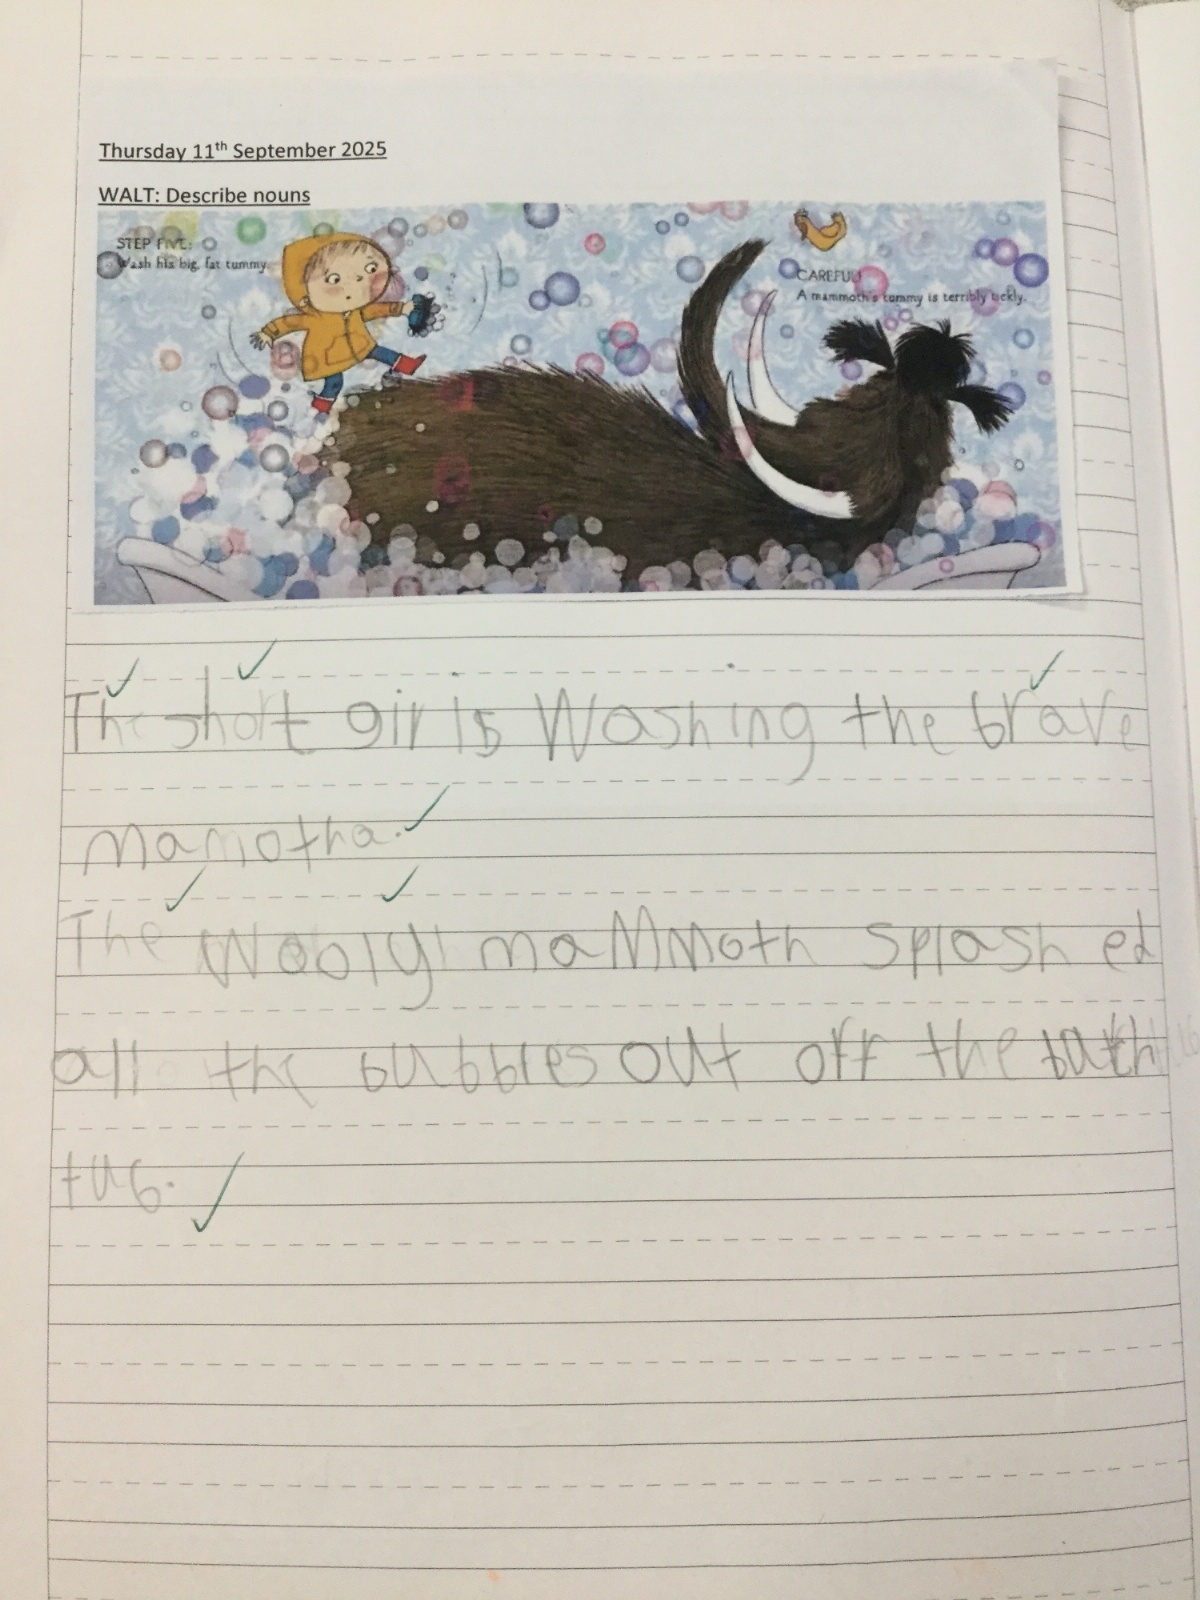 Thursday 11th September 2025
WALT: Describe nouns
STEP FIVE:
Wash his big, fat tummy.
CAREFUL!
A mammoth's tommy is terribly tickly.
The short girl is Washing the brave
mamotha.
The Wooly maMmoth splash ed
all the bubbles out off the bath
tub.